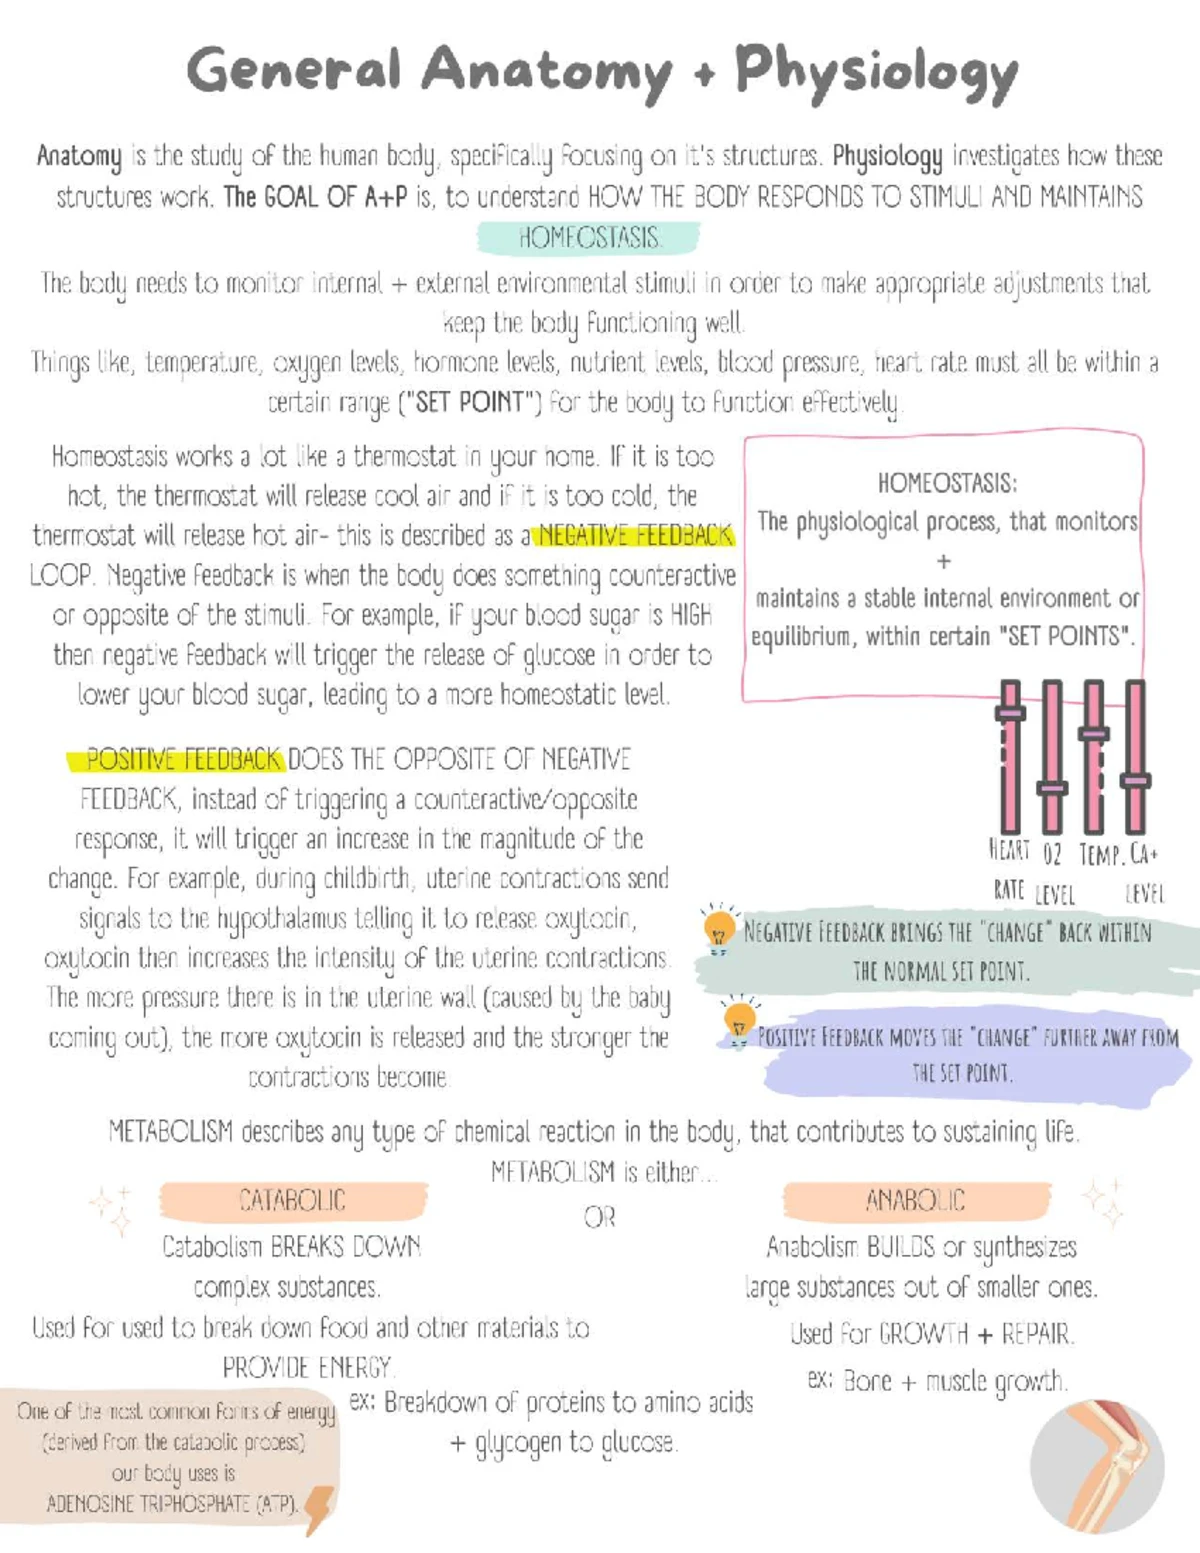 General Anatomy + Physiology
Anatomy is the study of the human body, specifically focusing on it's structures. Physiology investigates how these
structures work. The GOAL OF A+P is, to understand HOW THE BODY RESPONDS TO STIMULI AND MAINTAINS
HOMEOSTASIS.
The body needs to monitor internal + external environmental stimuli in order to make appropriate adjustments that
keep the body functioning well.
Things like, temperature, oxygen levels, hormone levels, nutrient levels, blood pressure, heart rate must all be within a
certain range ("SET POINT") for the body to function effectively.
Homeostasis works a lot like a thermostat in your home. If it is too
hot, the thermostat will release cool air and if it is too cold, the
thermostat will release hot air- this is described as a NEGATIVE FEEDBACK
LOOP. Negative feedback is when the body does something counteractive
or opposite of the stimuli. For example, if your blood sugar is HIGH
then negative feedback will trigger the release of glucose in order to
lower your blood sugar, leading to a more homeostatic level.
HOMEOSTASIS:
The physiological process, that monitors
+
maintains a stable internal environment or
equilibrium, within certain "SET POINTS".
POSITIVE FEEDBACK DOES THE OPPOSITE OF NEGATIVE
FEEDBACK, instead of triggering a counteractive/opposite
response, it will trigger an increase in the magnitude of the
change. For example, during childbirth, uterine contractions send
signals to the hypothalamus telling it to release oxytocin,
oxytocin then increases the intensity of the uterine contractions.
The more pressure there is in the uterine wall (caused by the baby
coming out), the more oxytocin is released and the stronger the
contractions become.
HEART O2 TEMP. CA+
RATE LEVEL LEVEL
NEGATIVE FEEDBACK BRINGS THE "CHANGE" BACK WITHIN
THE NORMAL SET POINT.
POSITIVE FEEDBACK MOVES THE "CHANGE" FURTHER AWAY FROM
THE SET POINT.
METABOLISM describes any type of chemical reaction in the body, that contributes to sustaining life.
METABOLISM is either...
CATABOLIC
OR
ANABOLIC
Catabolism BREAKS DOWN
complex substances.
Used for used to break down food and other materials to
PROVIDE ENERGY.
ex: Breakdown of proteins to amino acids
+ glycogen to glucose.
Anabolism BUILDS or synthesizes
large substances out of smaller ones.
Used for GROWTH + REPAIR.
ex: Bone + muscle growth.
One of the most common forms of energy
(derived from the catabolic process)
our body uses is
ADENOSINE TRIPHOSPHATE (ATP).